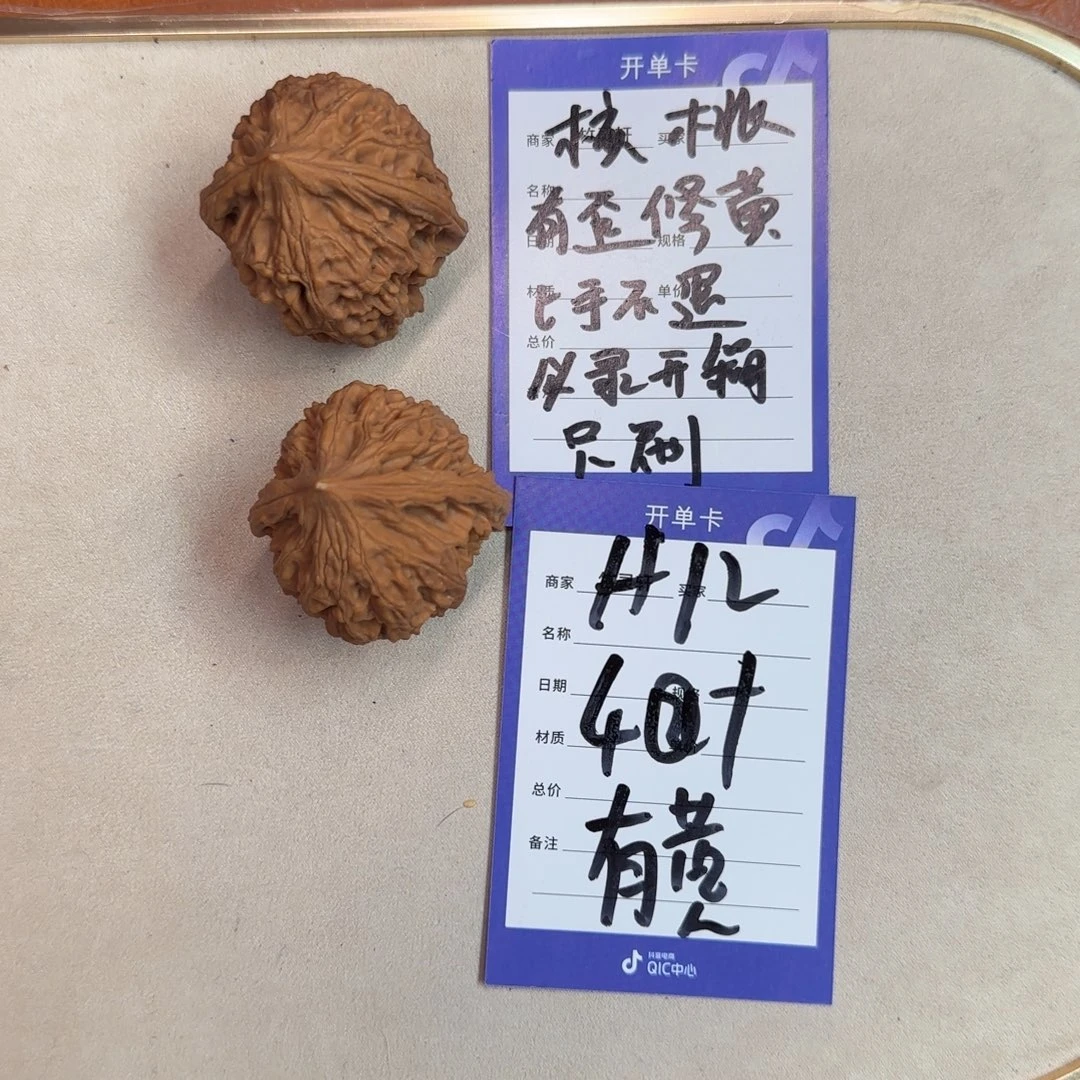 开单卡
核桃
商家 买家
名称
有歪修黄
日期 规格
材质 单价
上手不退
总价
必录开箱
只刷
开单卡
商家 买家
名称
日期 规格
40+
材质
总价
有黄
备注
抖音电商
QIC中心